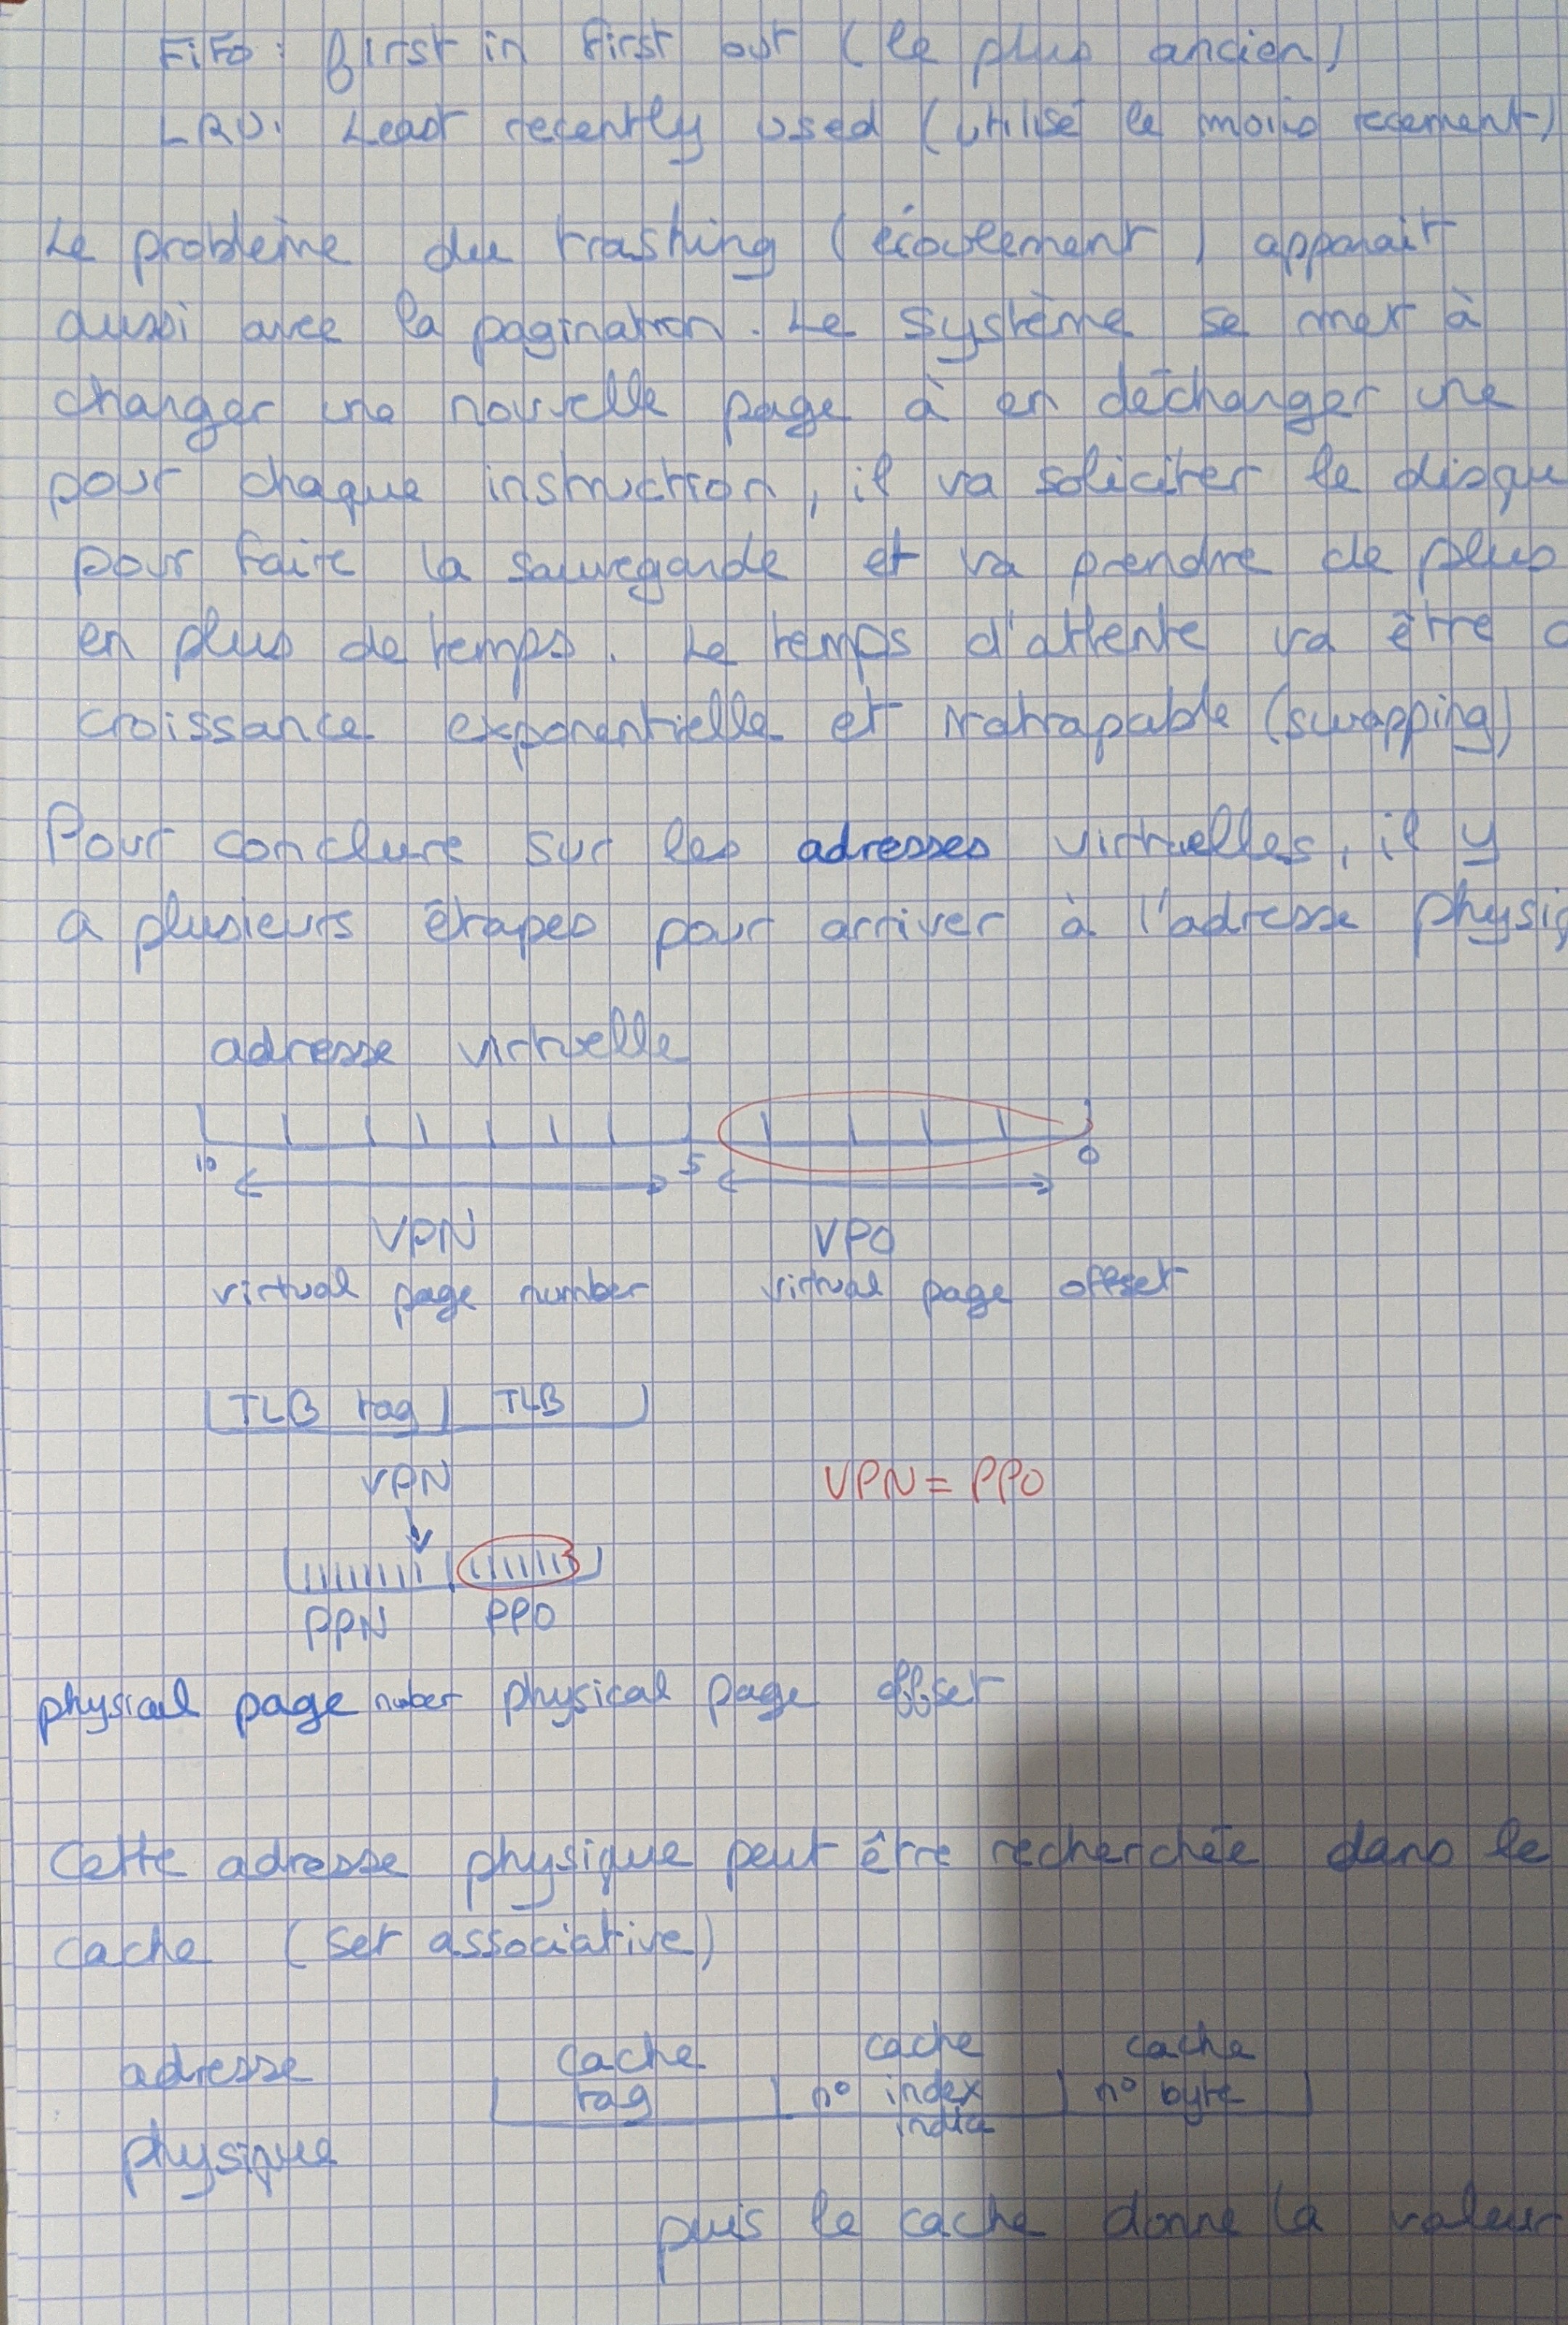 FiFo : first in first out (le plus ancien)
LRU : Least recently used (utilisé le moins recement)
Le problème du trashing (écoulement) apparait
aussi avec la pagination. Le système se met à
changer une nouvelle page à en déchanger une
pour chaque instruction, il va soliciter le disque
pour faire la sauvegarde et va prendre de plus
en plus de temps. Le temps d'attente va être
croissance exponentielle et ratrapable (swapping)
Pour conclure sur les adresses virtuelles, il y
a plusieurs étapes pour arriver à l'adresse physiq
adresse virtuelle
10 5 0
VPN VPO
virtual page number virtual page offset
TLB tag TLB
VPN VPN = PPO
PPN PPO
physical page number physical page offset
Cette adresse physique peut être recherchée dans le
cache (set associative)
adresse cache cache cache
tag n° index n° byte
physique india
puis le cache donne la valeur